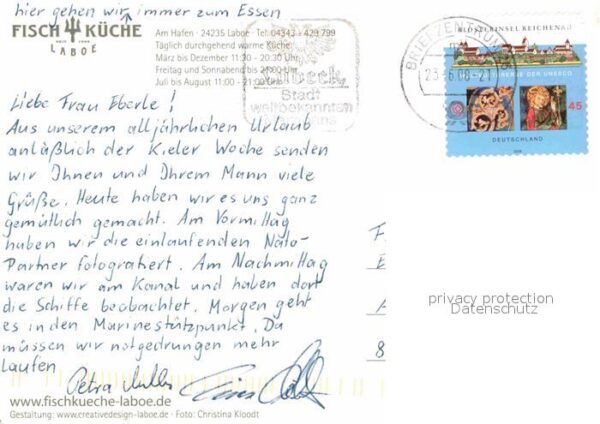 hier gehen wir immer zum Essen
FISCH KÜCHE
LABOE
Am Hafen · 24235 Laboe · Tel. 04343 - 429 799
Täglich durchgehend warme Küche:
März bis Dezember 11:30 - 20:30 Uhr
Freitag und Sonnabend bis 21:00 Uhr
Juli bis August 11:00 - 21:00 Uhr
Stadt
weltbekannten
BRIEFZENTRUM
KLOSTERINSEL REICHENAU
DER UNESCO
45
DEUTSCHLAND
2008
Liebe Frau Eberle!
Aus unserem alljährlichen Urlaub
anläßlich der Kieler Woche senden
wir Ihnen und Ihrem Mann viele
Grüße. Heute haben wir es uns ganz
gemütlich gemacht. Am Vormittag
haben wir die einlaufenden Nato-
Partner fotografiert. Am Nachmittag
waren wir am Kanal und haben dort
die Schiffe beobachtet. Morgen geht
es in den Marinestützpunkt. Da
müssen wir notgedrungen mehr
laufen
Petra
F
E
A
8
privacy protection
Datenschutz
www.fischkueche-laboe.de
Gestaltung: www.creativedesign-laboe.de · Foto: Christina Kloodt